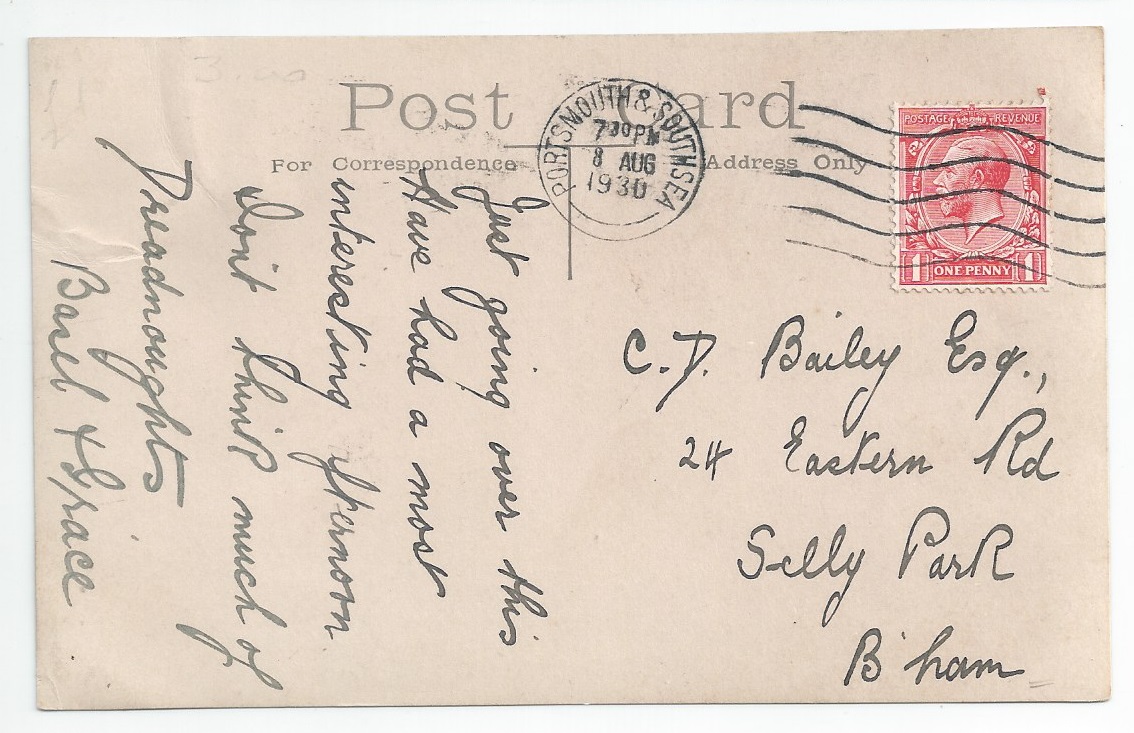 Post Card
For Correspondence
Address Only
PORTSMOUTH & SOUTHSEA
7 30 PM
8 AUG
1930
POSTAGE REVENUE
1 ONE PENNY 1
Just going over this
Have had a most
interesting afternoon
Don't think much of
Dreadnoughts
Basil & Grace
C. D. Bailey Esq.,
24 Eastern Rd
Selly Park
B'ham